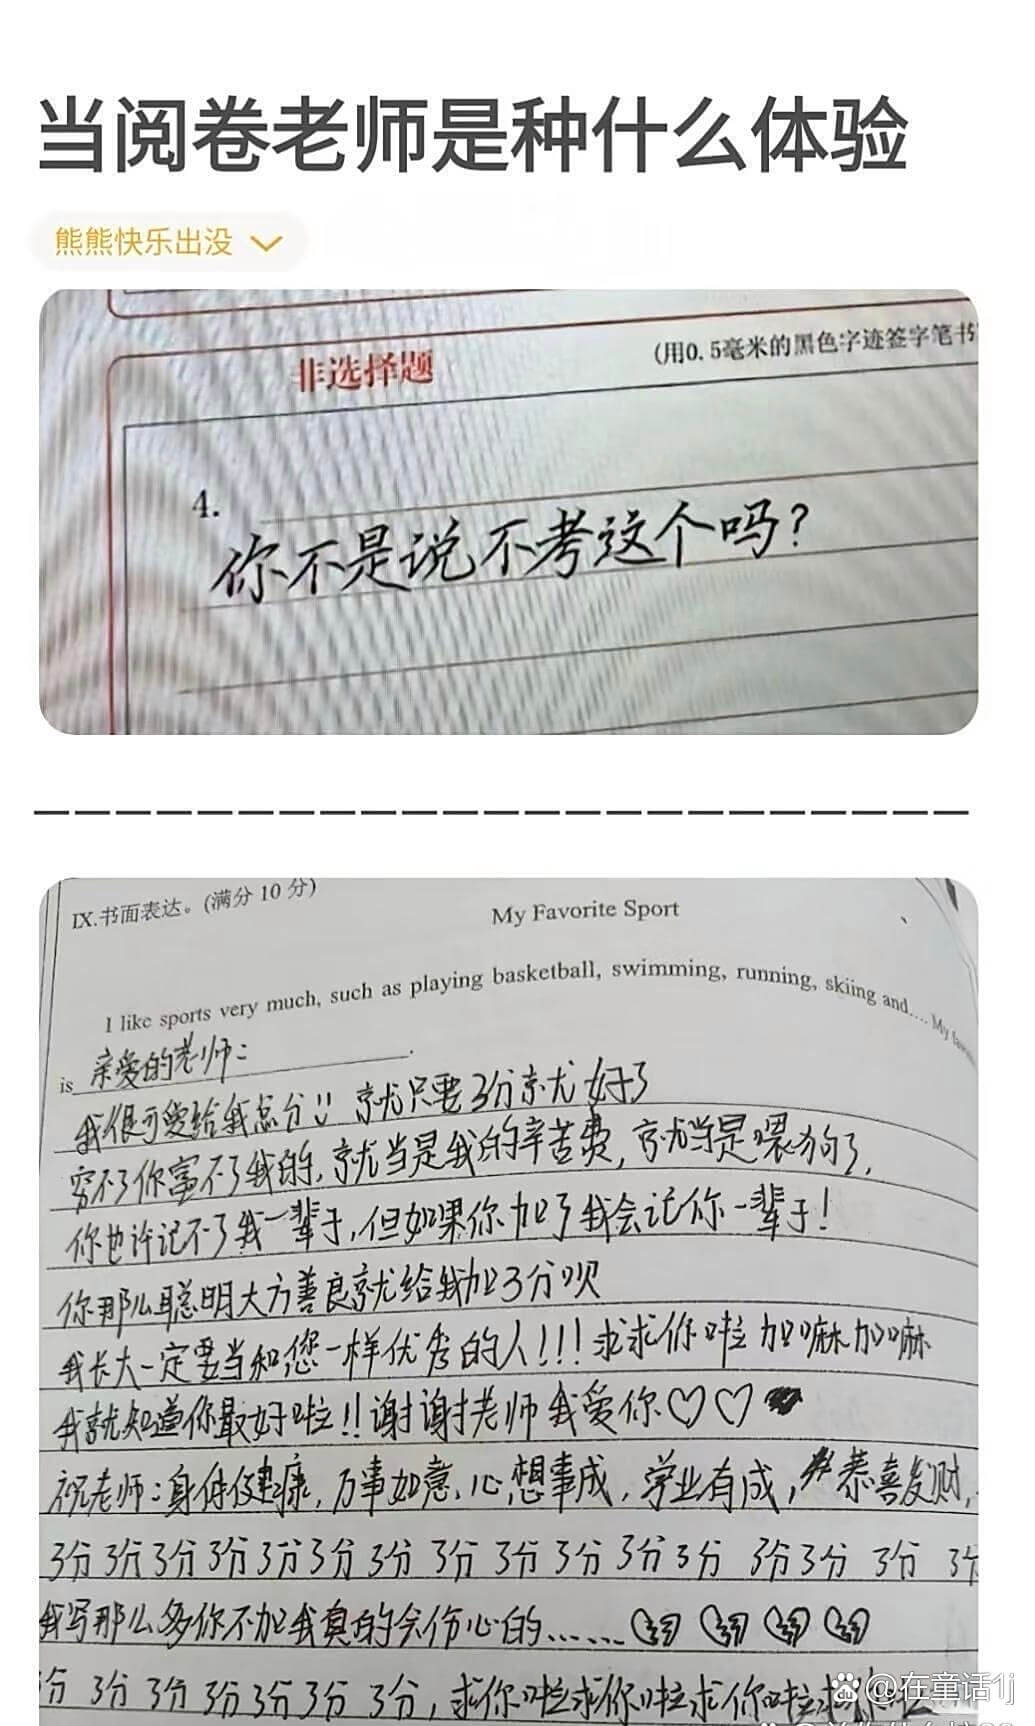 当阅卷老师是种什么体验
熊熊快乐出没
非选择题
(用0.5毫米的黑色字迹签字笔书
4.
你不是说不考这个吗?
IX.书面表达。(满分 10 分)
My Favorite Sport
I like sports very much, such as playing basketball, swimming, running, skiing and.... My
is 亲爱的老师:
我很可爱给我点分!! 就只要3分就好了
穷不了你富不了我的,就当是我的辛苦费,就当是喂狗了,
你也许记不了我一辈子,但如果你加了我会记你一辈子!
你那么聪明大方善良就给我加3分呗
我长大一定要当和您一样优秀的人!!!求求你啦加嘛加嘛
我就知道你最好啦!!谢谢老师我爱你♡♡
祝老师:身体健康,万事如意,心想事成,学业有成,恭喜发财,
3分3分3分3分3分3分3分 3分 3分3分 3分3分 3分3分 3分 3分
我写那么多你不加我真的会伤心的……
分 3分 3分 3分 3分 3分 3分,求你啦求你啦求你啦求
@在童话1j